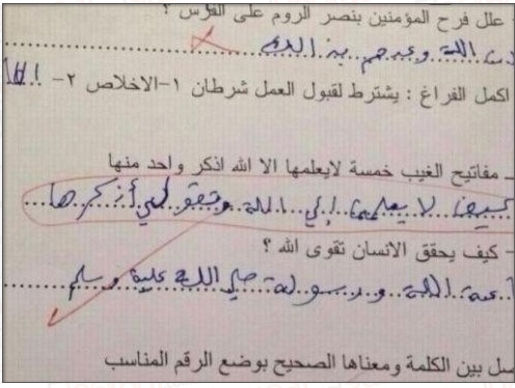 علل فرح المؤمنين بنصر الروم على الفرس ؟
الله وعدهم بذالك
اكمل الفراغ : يشترط لقبول العمل شرطان ١-الاخلاص ٢-
ـ مفاتيح الغيب خمسة لايعلمها الا الله اذكر واحد منها
كيف لا يعلمها إلى اللة وتقولي أذكرها
- كيف يحقق الانسان تقوى الله ؟
اللة ورسولة صلي اللة علية وسلم
بين الكلمة ومعناها الصحيح بوضع الرقم المناسب